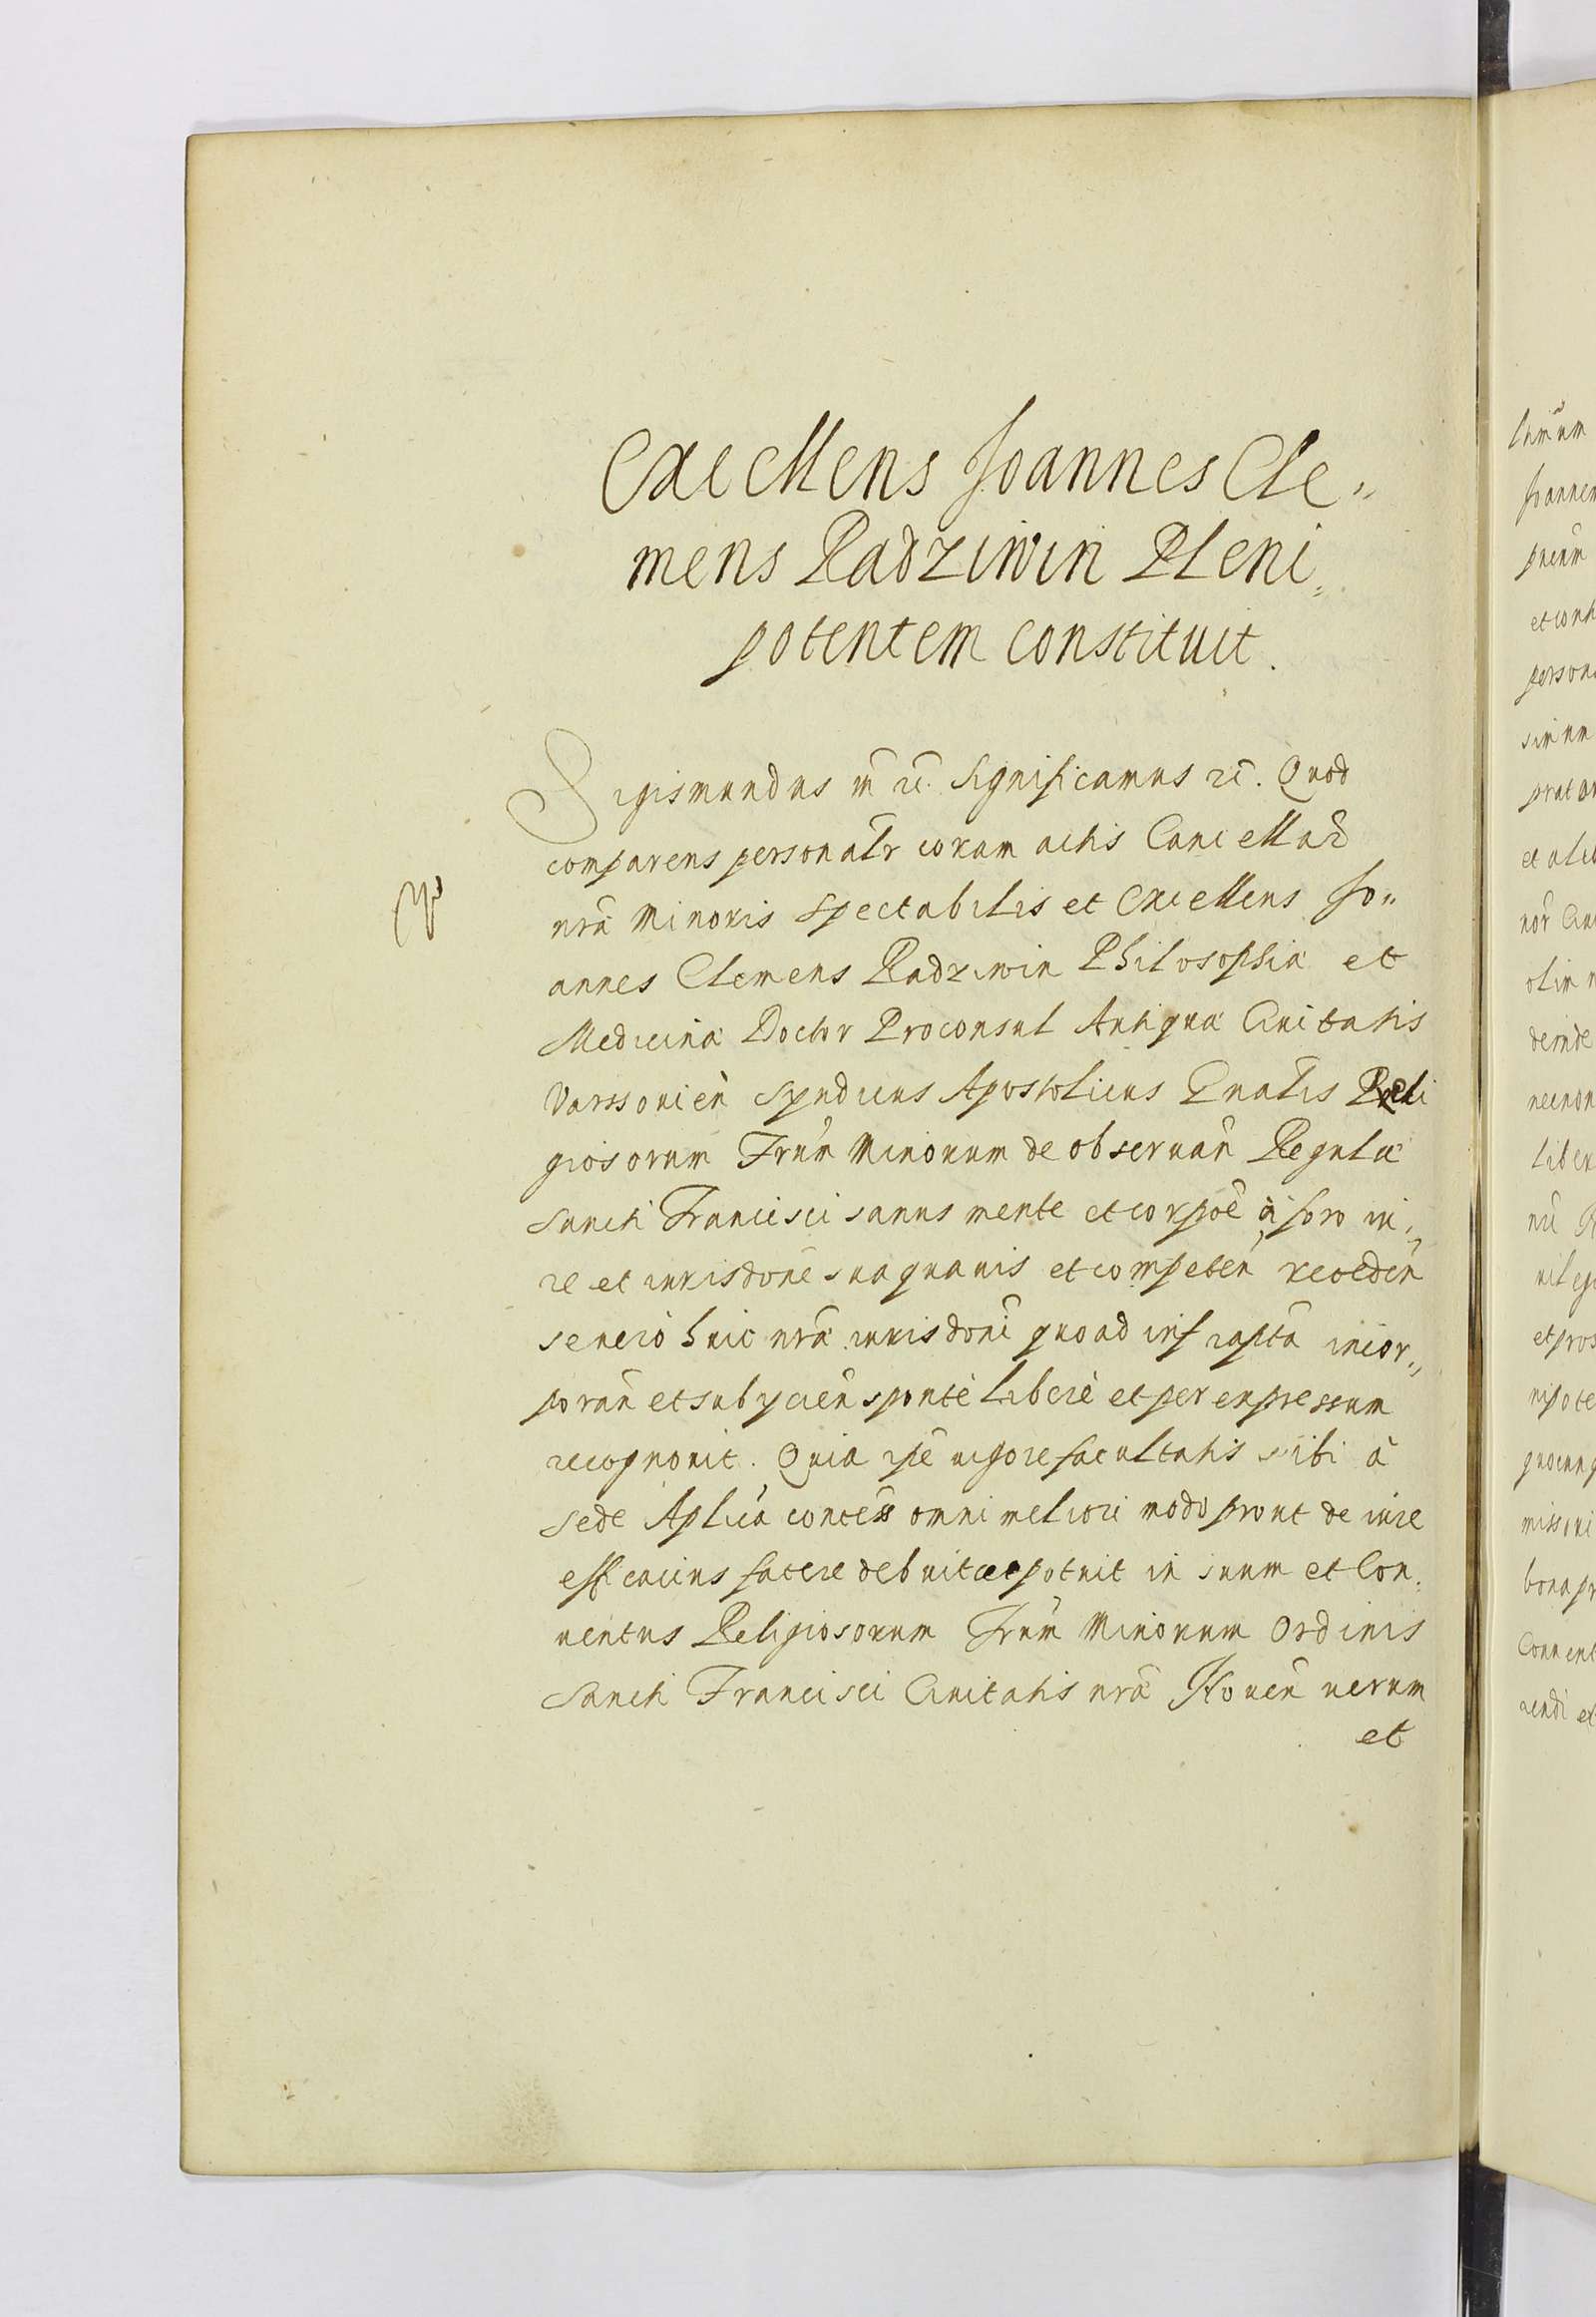 Excellens Joannes Cle„
mens Radziwin Pleni„
potentem constituit.
Sigismundus III etc. Significamus etc. Quod
comparens personalr coram actis Cancellar
nrã Minoris Spectabilis et Excellens Jo„
annes Clemens Radziwin Philosophiæ et
Medicinæ Doctor Proconsul Antiquæ Ciuitatis
Varssouien Syndicus Apostolicus Gnalis Reli
giosorum Frum Minorum de obseruan Regulæ
Sancti Francisci sanus mente et corpoe à foro iu„
re et iurisdone sua quauis et competen receden
seueró huic nræ iurisdoni quoad infrascpta incor„
poran et subycien sponte libere et per expressum
recognouit. Quia ipse uigore facultatis sibi à
sede Aplica concess omni meliori modo prout de iure
efficacius facere debuit et potuit in suum et Con„
uentus Religiosorum Frum Minorum Ordinis
Sancti Francisci Ciuitatis nræ Kouen rerum
et